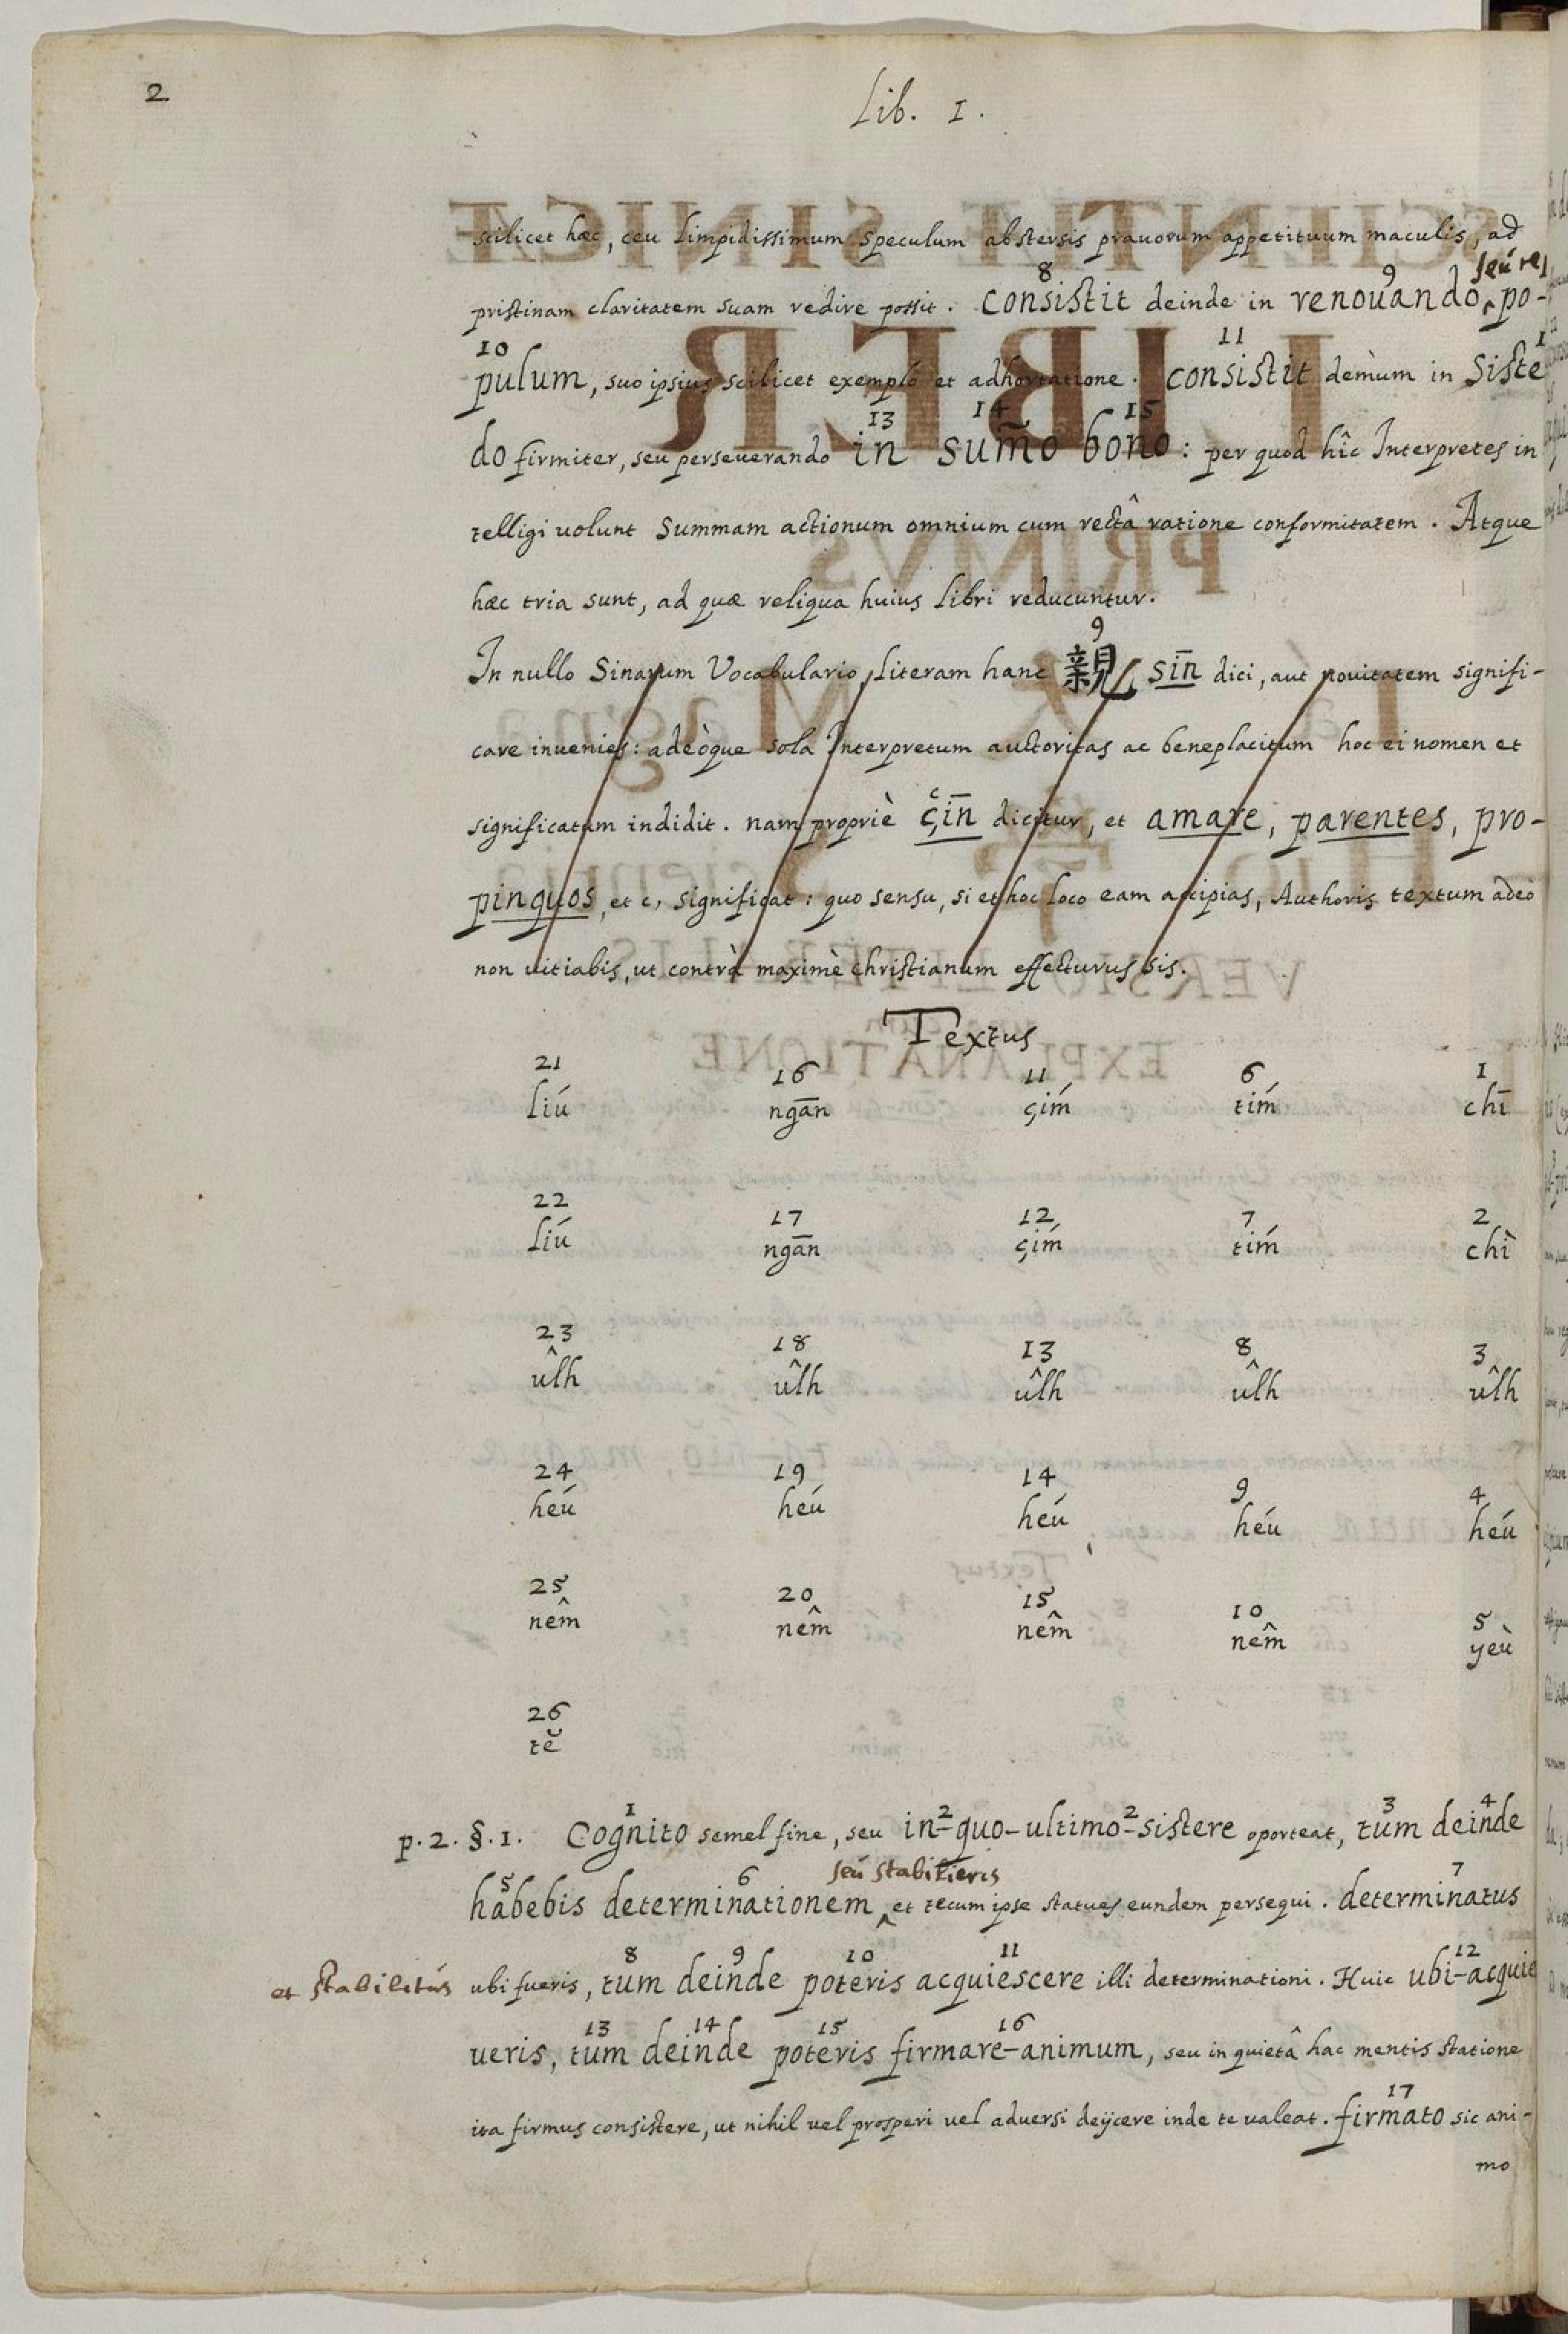 2
Lib. 1.
scilicet hæc, ceu limpidissimum speculum abstersis prauorum appetituum maculis, ad
seú re
8 9
pristinam claritatem suam redire possit. consistit deinde in renouando po-
10 11
pulum, suo ipsius scilicet exemplo et adhortatione. consistit demùm in siste
13 14 15
do firmiter, seu perseuerando in sum̃o bono: per quod hîc Interpretes in
telligi uolunt summam actionum omnium cum rectâ ratione conformitatem. Atque
hæc tria sunt, ad quæ reliqua huius libri reducuntur.
9
In nullo Sinarum Vocabulario literam hanc 親 sīn dici, aut nouitatem signifi-
care inuenies: adeòque sola Interpretum auctoritas ac beneplacitum hoc ei nomen et
significatum indidit. nam propriè çīn dicitur, et amare, parentes, pro-
pinquos, et c, significat: quo sensu, si et hoc loco eam accipias, Authoris textum adeò
non uitiabis, ut contrà maximè christianum effecturus sis.
Textus
21 16 11 6 1
liú ngān çiḿ tiḿ chī
22 17 12 7 2
liú ngān çiḿ tiḿ chì
23 18 13 8 3
ûlh ûlh ûlh ûlh ûlh
24 19 14 9 4
héú héú héú héú héú
25 20 15 10 5
nêm nêm nêm nêm yeù
26
tĕ
1 2 2 3 4
p. 2. §. 1. Cognito semel fine, seu in-quo-ultimo-sistere oporteat, tum deinde
seú stabilieris
5 6 7
habebis determinationem et tecum ipse statues eundem persequi. determinatus
8 9 10 11 12
et stabilitús ubi fueris, tum deinde poteris acquiescere illi determinationi. Huic ubi-acquie
13 14 15 16
ueris, tum deinde poteris firmare-animum, seu in quietâ hac mentis statione
17
ita firmus consistere, ut nihil uel prosperi uel aduersi deijcere inde te ualeat. firmato sic ani-
mo